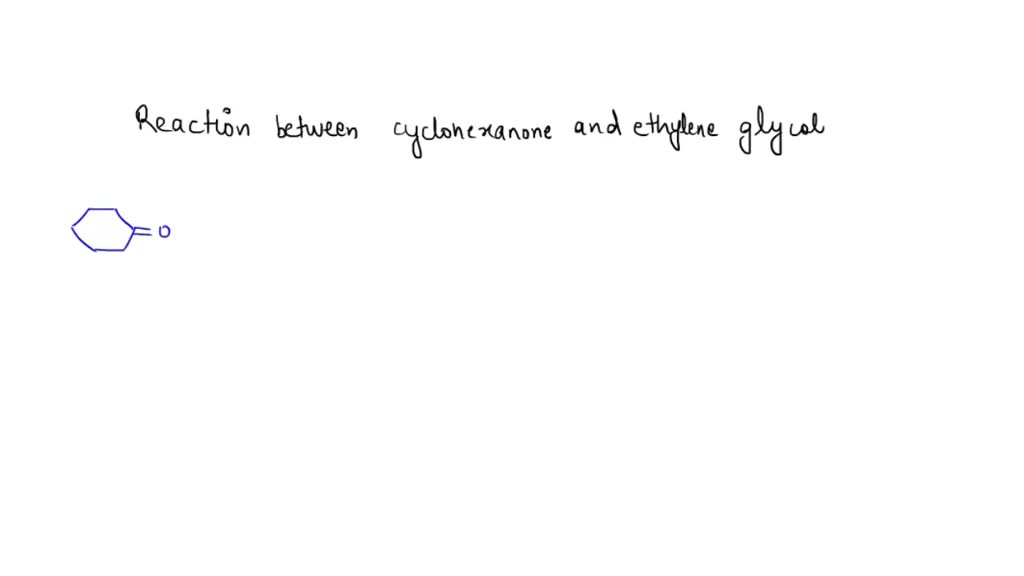 Reaction between cyclohexanone and ethylene glycol
O